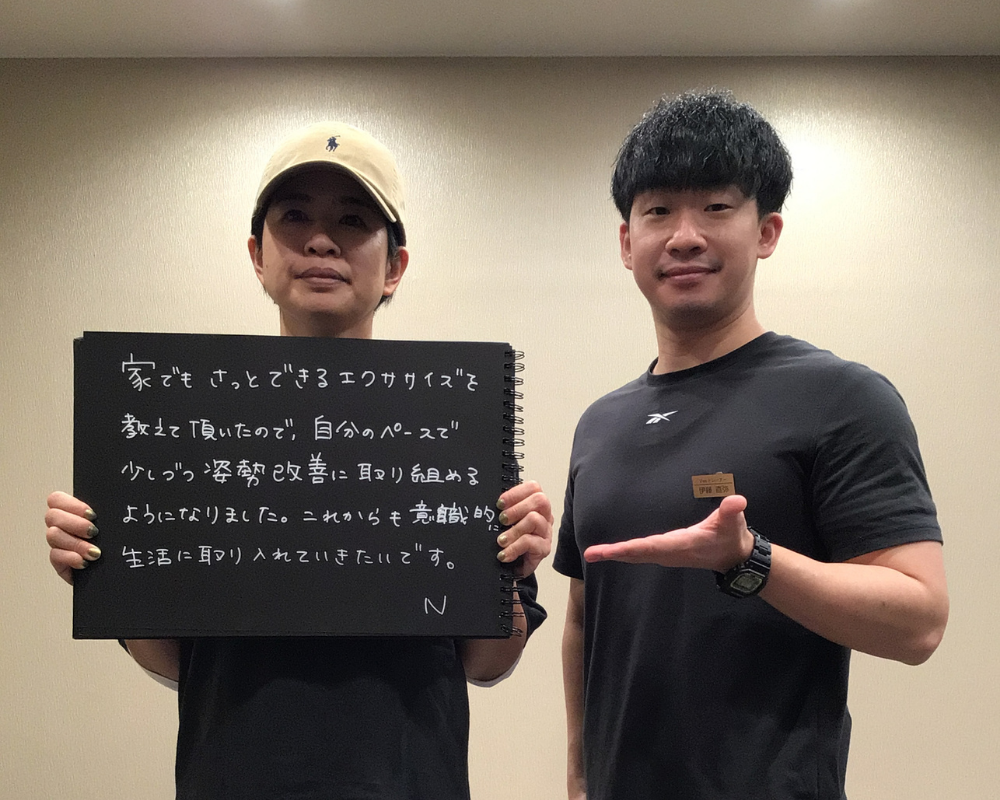 家でもさっとできるエクササイズを
教えて頂いたので、自分のペースで
少しづつ姿勢改善に取り組める
ようになりました。これからも意識的に
生活に取り入れていきたいです。
N
伊藤